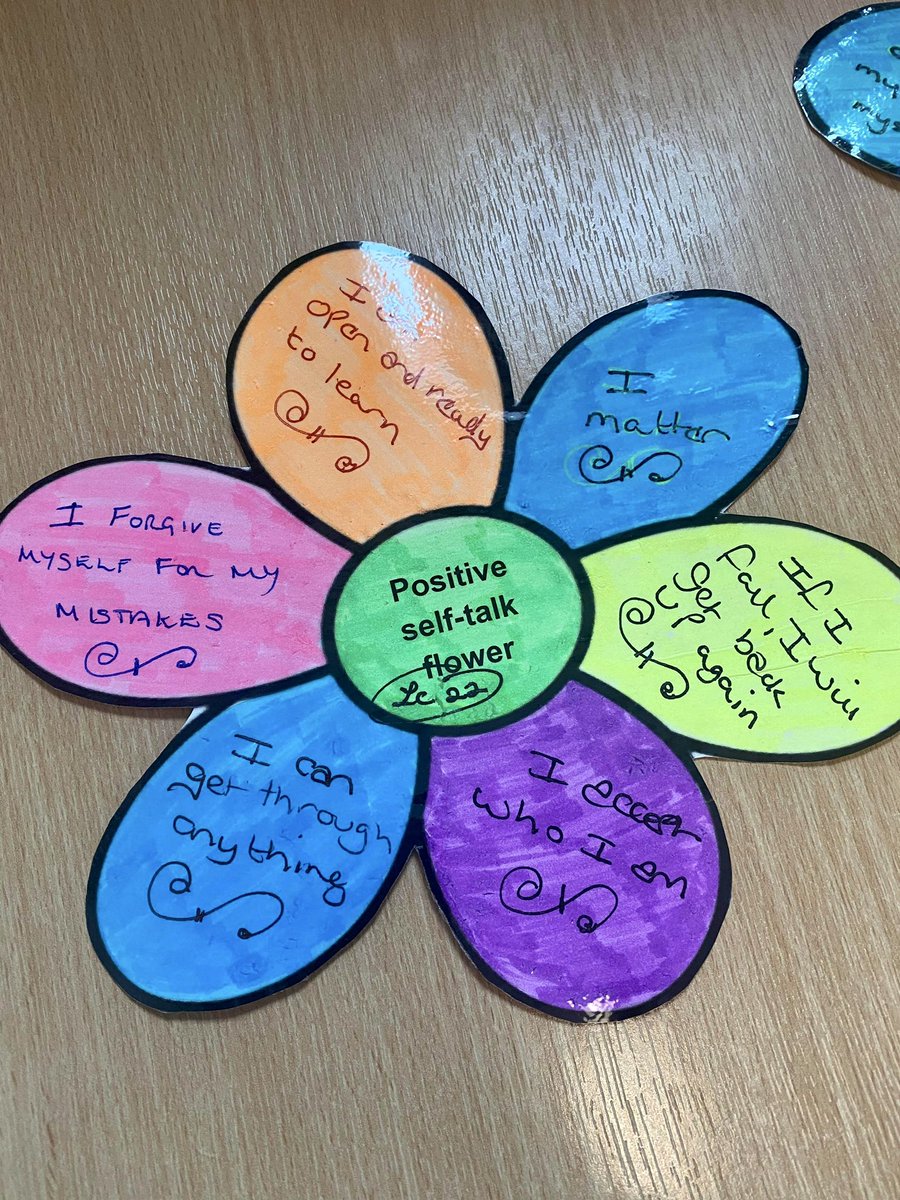 Positive
self-talk
flower
Lc 22
I
open and ready
to learn
I
matter
If I
fail, I will
get back
up again
I accept
who I am
I can
get through
anything
I FORGIVE
MYSELF FOR MY
MISTAKES